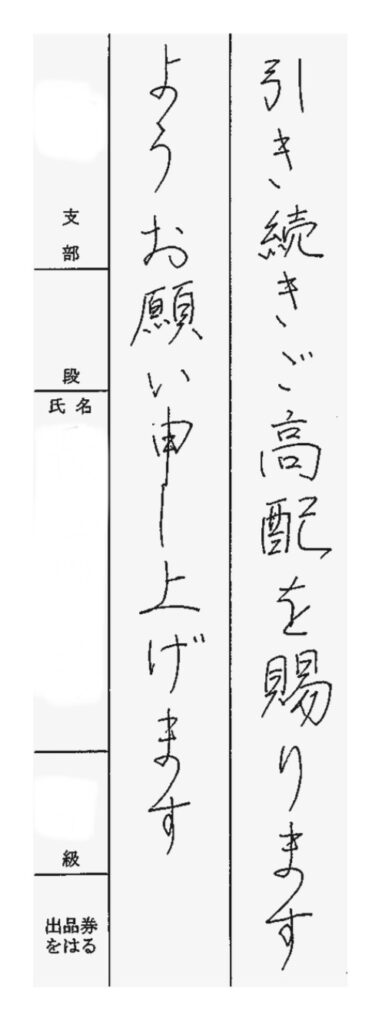 引き続きご高配を賜ります
ようお願い申し上げます
支部
段
氏名
級
出品券
をはる